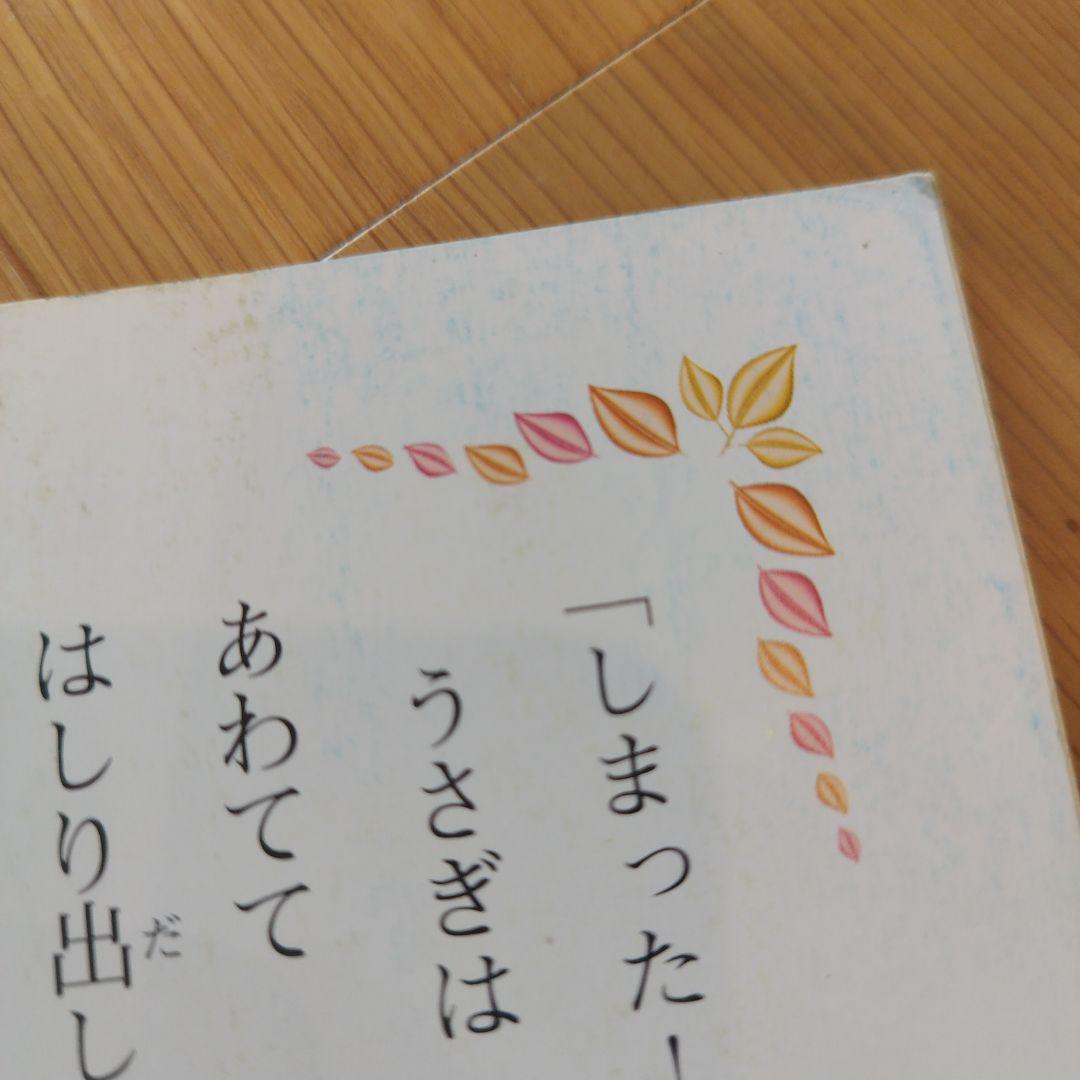 「しまった!
うさぎは
あわてて
はしり出し
だ